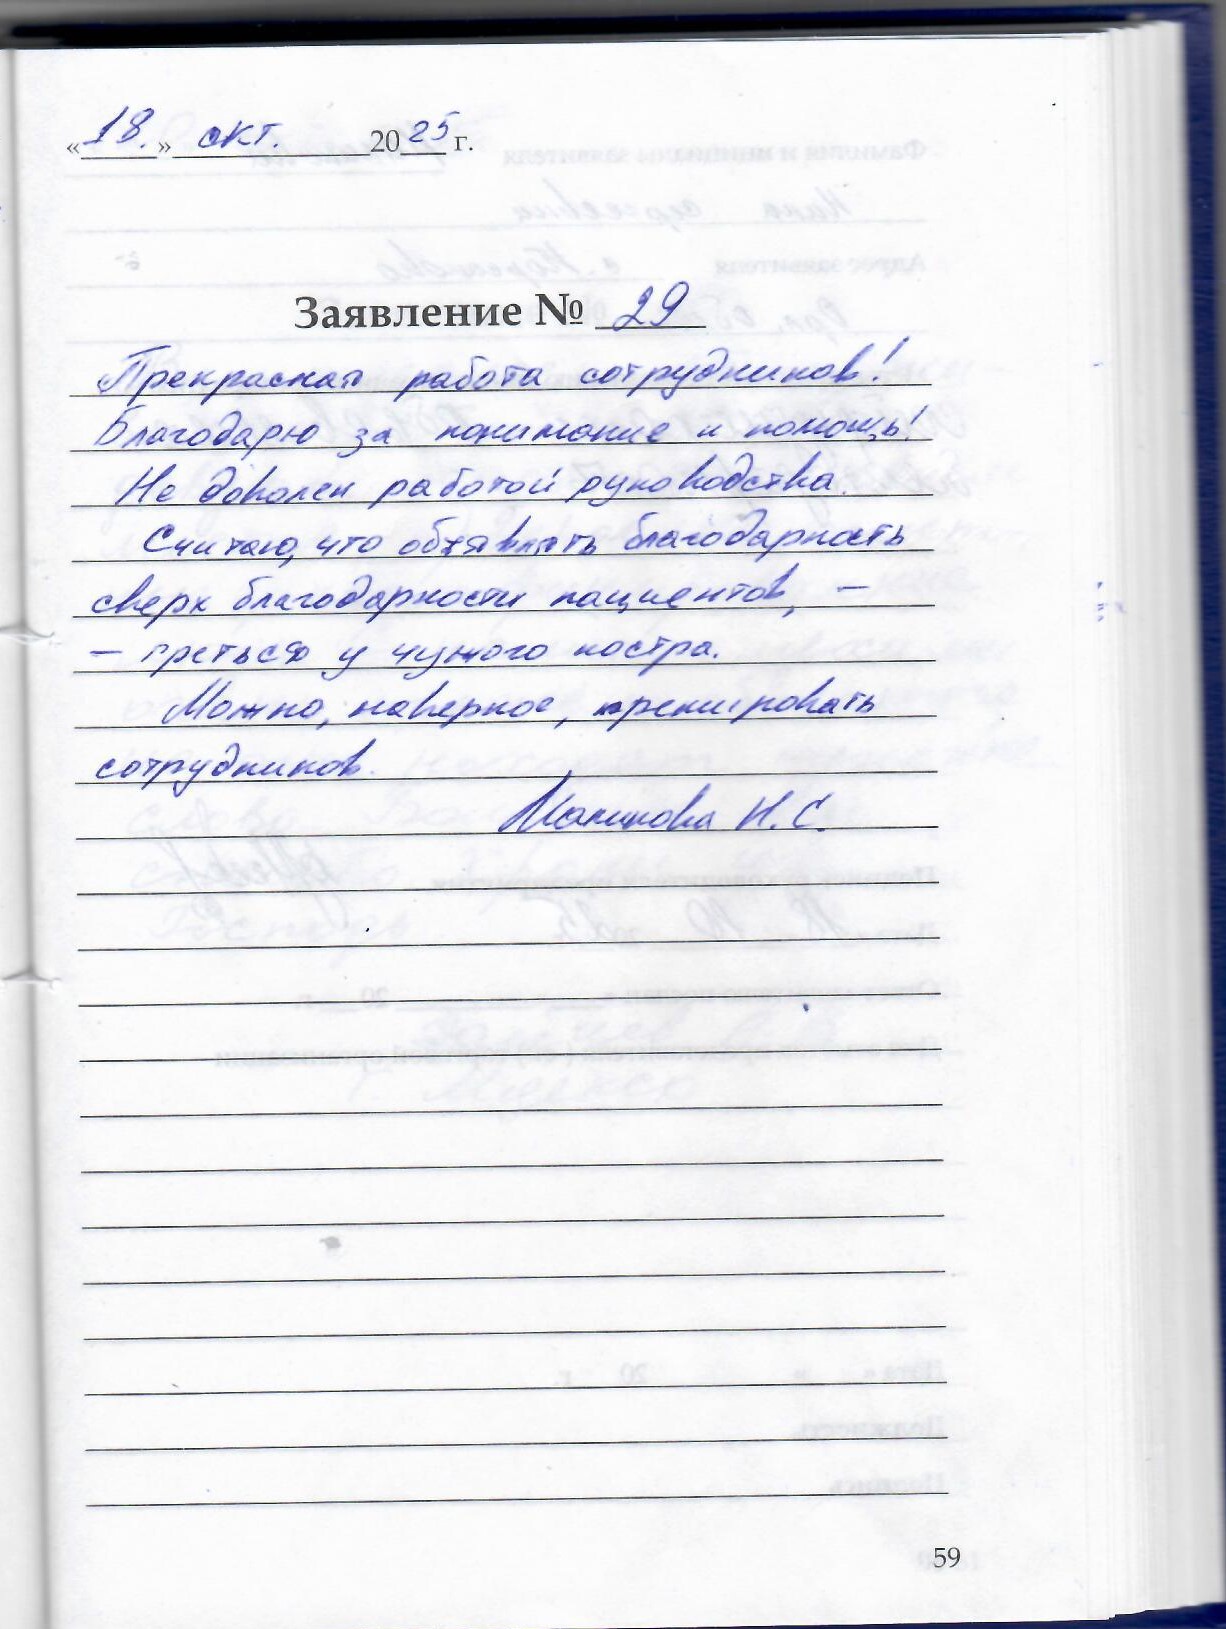 «18.» окт. 2025 г.
Заявление № 29
Прекрасная работа сотрудников!
Благодарю за понимание и помощь!
Не доволен работой руководства.
Считаю, что объявлять благодарность
сверх благодарности пациентов, –
– греться у чужого костра.
Можно, наверное, премировать
сотрудников.
Н. С.
59